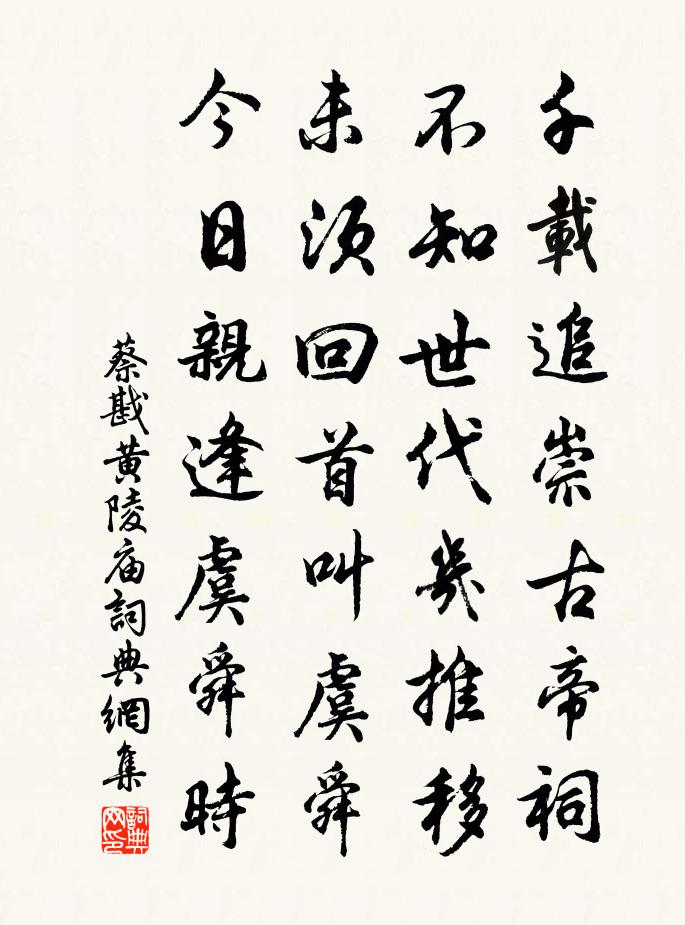 千載追崇古帝祠
不知世代幾推移
未須回首叫虞舜
今日親逢虞舜時
蔡戡黄陵庙詞典網集
詞典网印